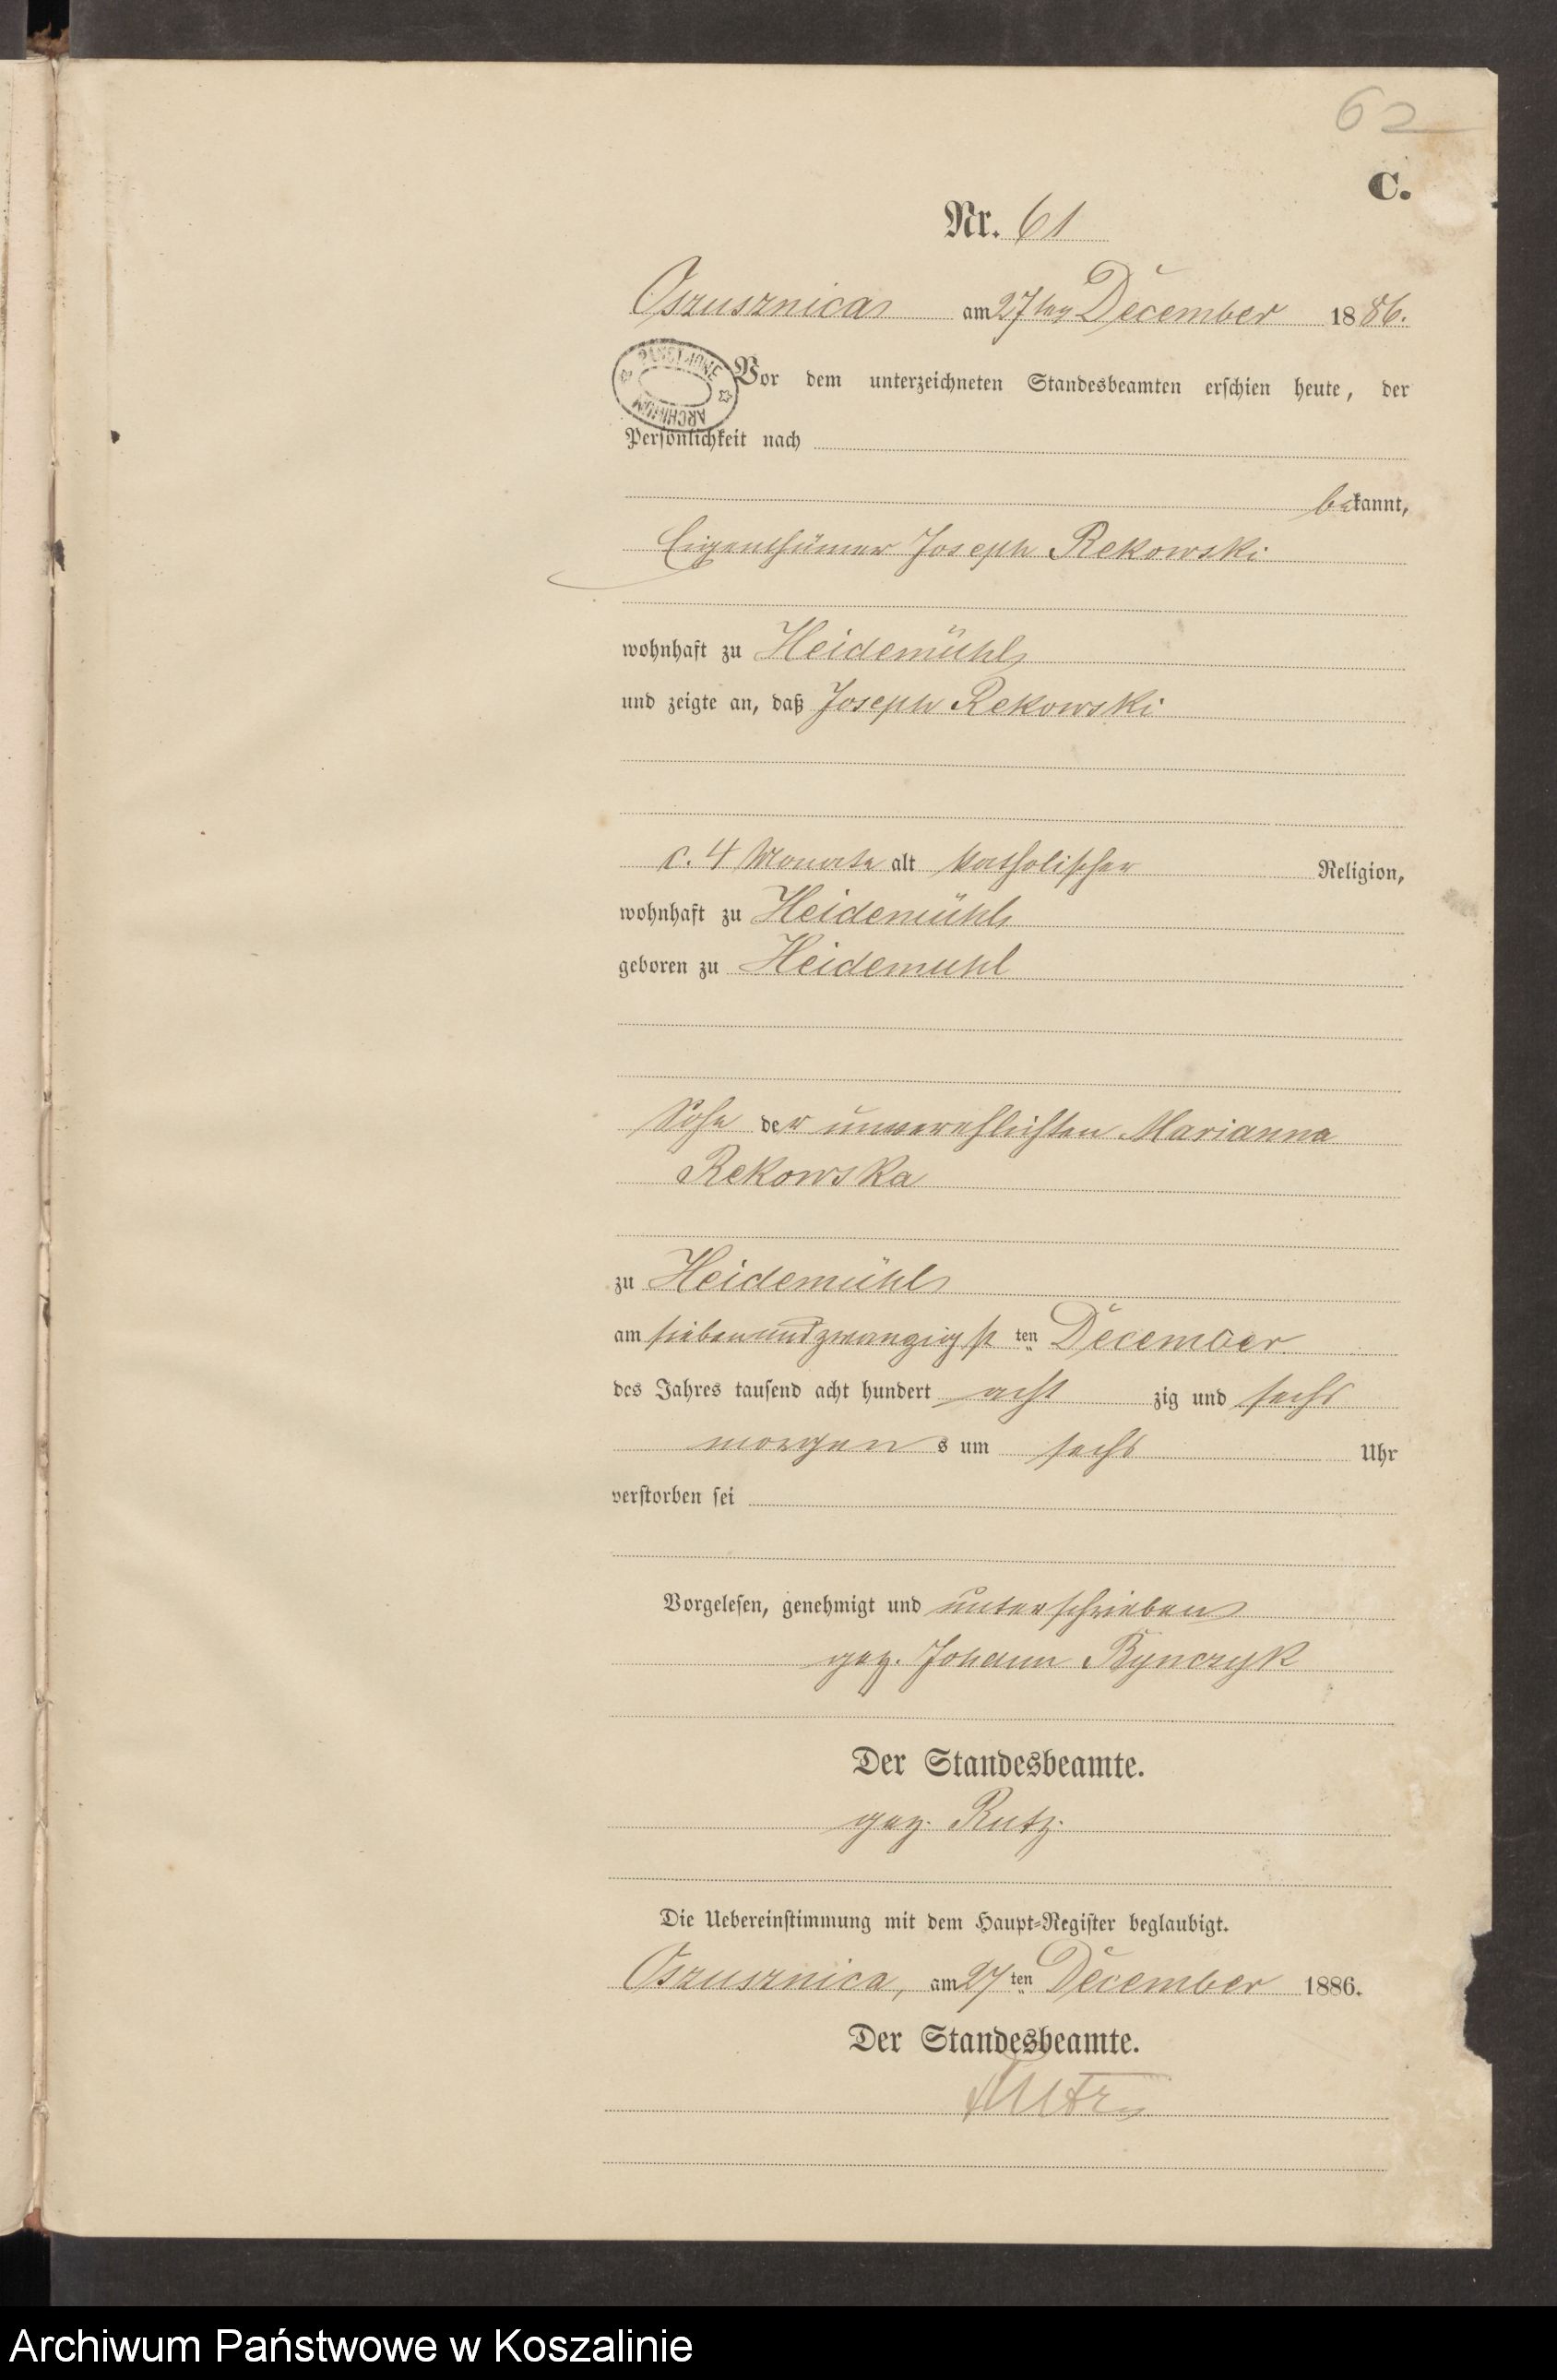 62
C.
Nr. 61
Oszusznica am 27ten December 1886.
Vor dem unterzeichneten Standesbeamten erschien heute, der
PAŃSTWOWE
ARCHIWUM
Persönlichkeit nach
bekannt,
Eigenthümer Joseph Rekowski
wohnhaft zu Heidemühl
und zeigte an, daß Joseph Rekowski
c. 4 Monate alt katholischer Religion,
wohnhaft zu Heidemühl
geboren zu Heidemuhl
Sohn der unverehlichten Marianna
Rekowska
zu Heidemühl
am siebenundzwanzigst ten December
des Jahres tausend acht hundert acht zig und sechs
morgen s um sechs Uhr
verstorben sei
Vorgelesen, genehmigt und unterschrieben
gez. Johann
Der Standesbeamte.
gez. Rutz.
Die Uebereinstimmung mit dem Haupt-Register beglaubigt.
Oszusznica, am 27 ten December 1886.
Der Standesbeamte.
Rutz
Archiwum Państwowe w Koszalinie